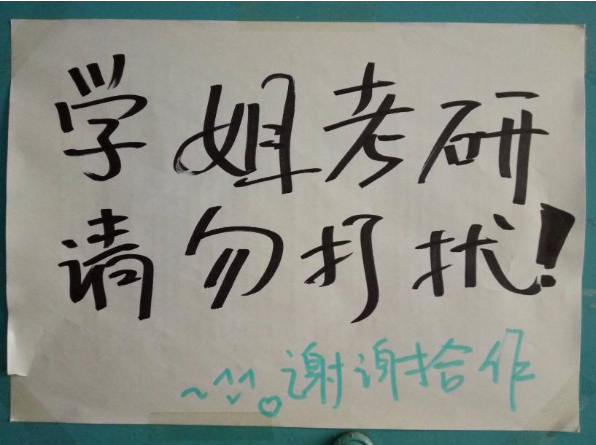 学姐考研
请勿打扰!
~^^。谢谢拾作